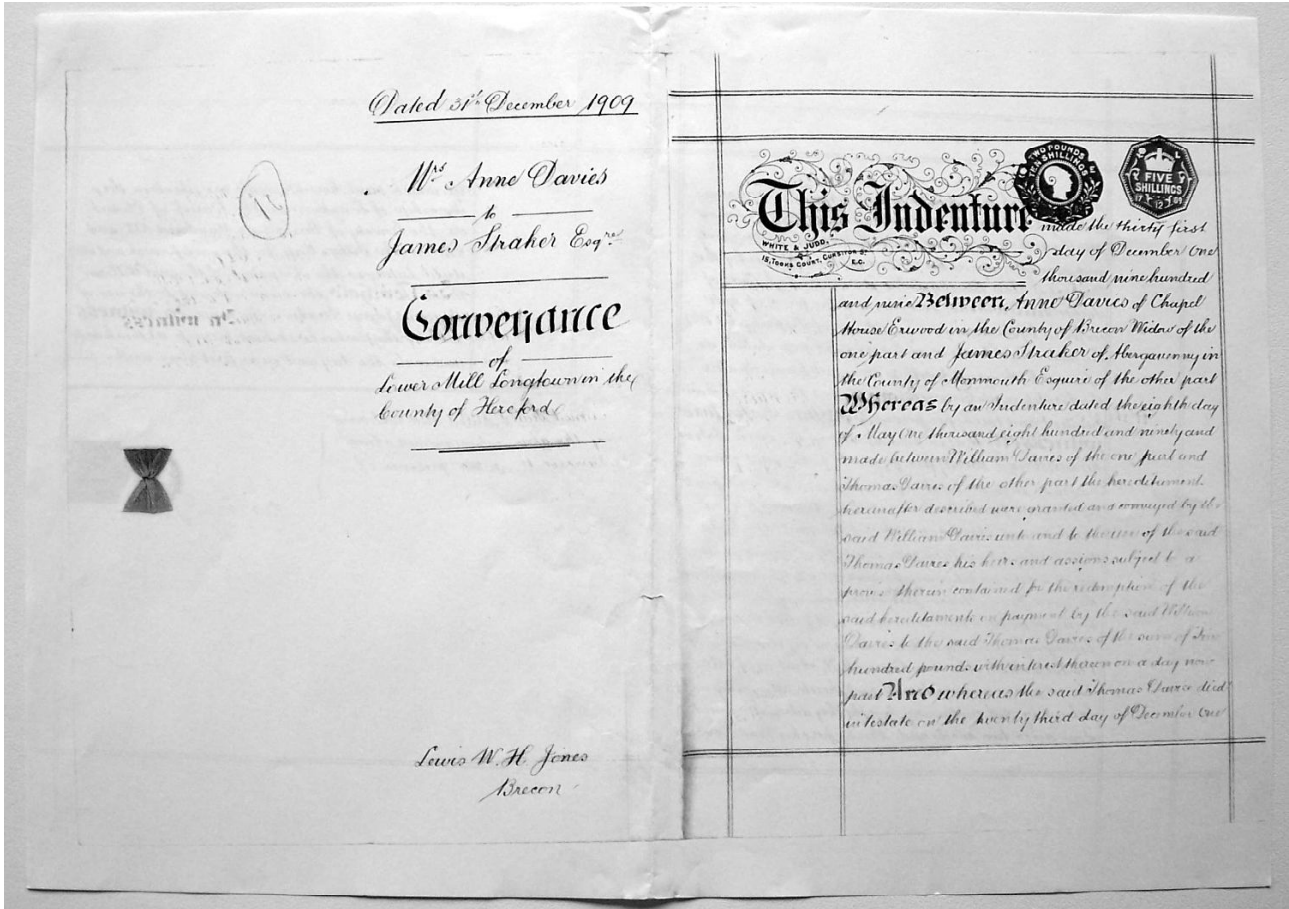 Dated 31st December 1909
Mrs Anne Davies
to
James Straker Esqre
Conveyance
of
Lower Mill Longtown in the
County of Hereford
Lewis W. H. Jones
Brecon
TWO POUNDS
TEN SHILLINGS
FIVE
SHILLINGS
This Indenture
WHITE & JUDD.
15, TOOKS COURT, CURSITOR ST
E.C.
made the thirty first
day of December One
thousand nine hundred
and nine Between Anne Davies of Chapel
House Erwood in the County of Brecon Widow of the
one part and James Straker of Abergavenny in
the County of Monmouth Esquire of the other part
Whereas by an Indenture dated the eighth day
of May One thousand eight hundred and ninety and
made between William Davies of the one part and
Thomas Davies of the other part the hereditaments
hereinafter described were granted and conveyed by the
said William Davies unto and to the use of the said
Thomas Davies his heirs and assigns subject to a
proviso therein contained for the redemption of the
said hereditaments on payment by the said William
Davies to the said Thomas Davies of the sum of
hundred pounds with interest thereon on a day now
past And whereas the said Thomas Davies died
intestate on the twenty third day of December One